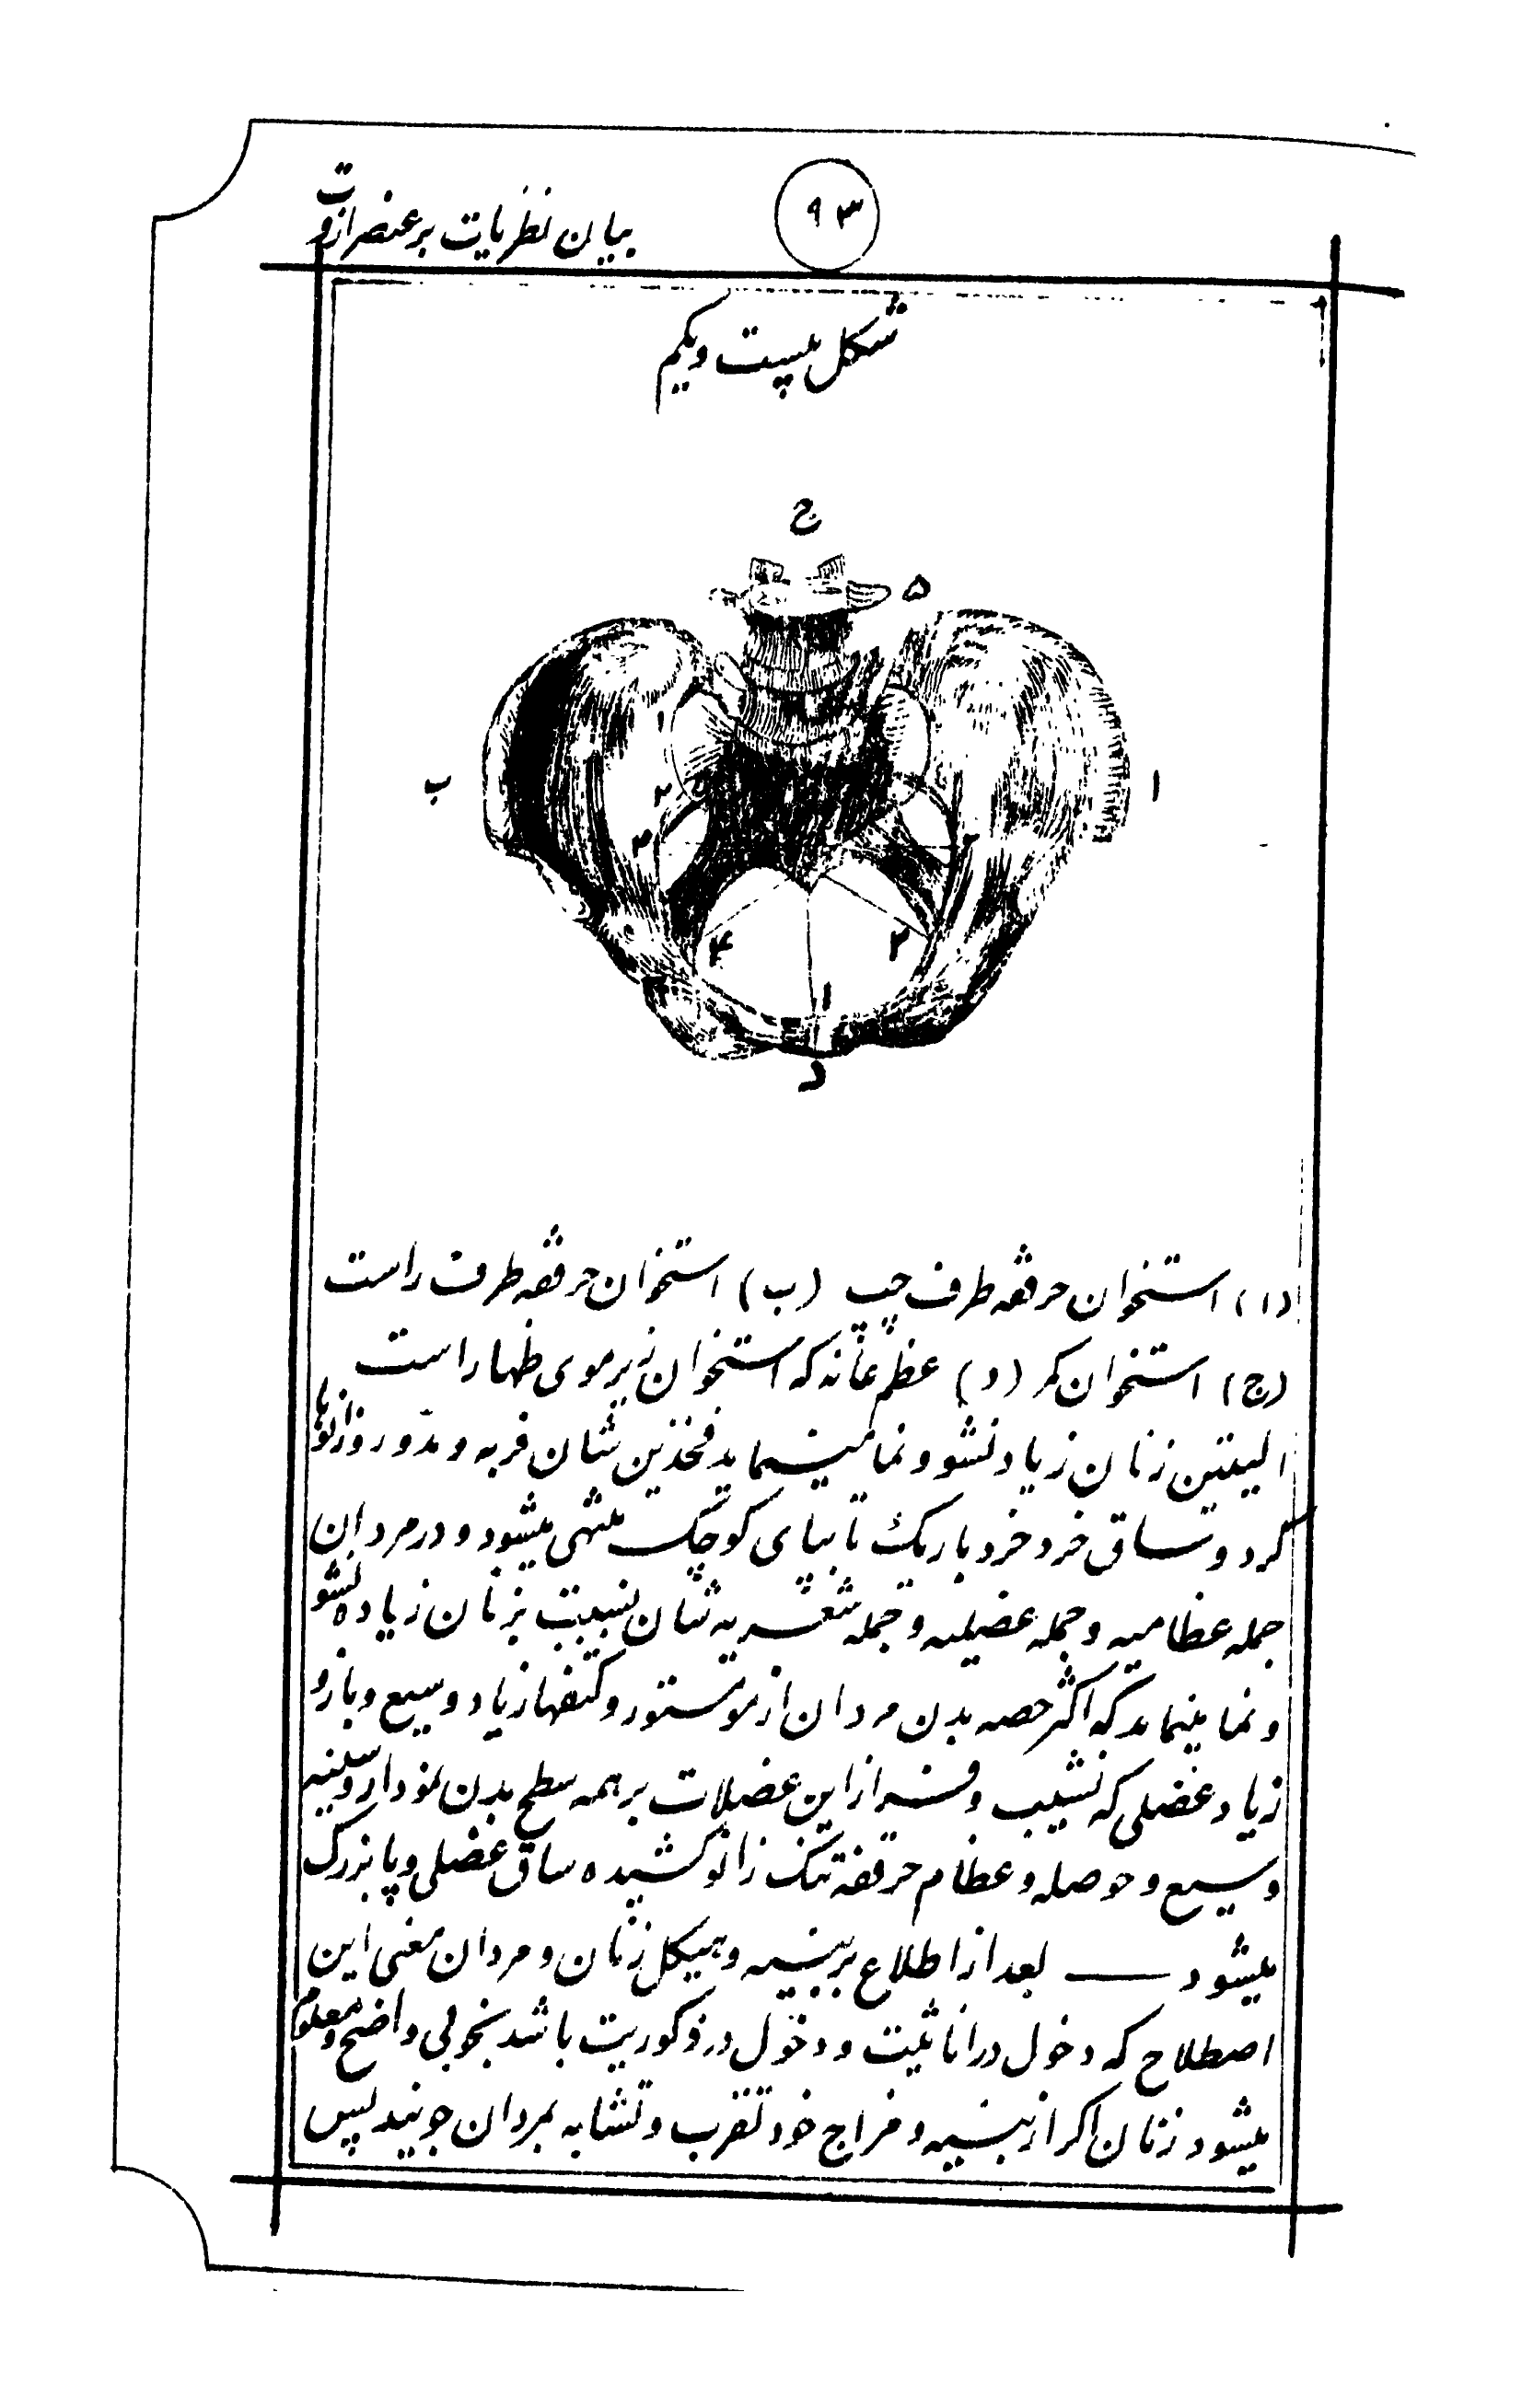 ۹۳
بیان نظریات بر عنصر ازوت
شکل بیست و یکم
ج
۵
ا
ب
۱
۲
۳
۲
۴
۲
۱
د
(ا) استخوان حرقفه طرف چپ (ب) استخوان حرقفه طرف راست
(ج) استخوان کمر (د) عظم عانه که استخوان زیر موی ظهار است
الیتین زنان زیاد نشو و نما مینماید فخذین شان فربه و مدور زانوها
گرد و ساق خرد خرد باریک تا بپای کوچک منتهی میشود و در مردان
جمله عظامیه و جمله عضلیه و جمله شعریه شان بنسبت بزنان زیاده نشو
و نما مینماید که اکثر حصه بدن مردان از مو مستور و کتفها زیاد وسیع و بازو
زیاد عضلی که نشیب و فراز این عضلات بر همه سطح بدن نمودار و سینه
وسیع و حوصله و عظام حرقفه تنگ زانو کشیده ساق عضلی و پا بزرگ
میشود — بعد از اطلاع بر بنیه و هیکل زنان و مردان معنی این
اصطلاح که دخول در اناثیت و دخول در ذکوریت باشد بخوبی واضح و معلوم
میشود زنان اگر از بنیه و مزاج خود تقرب و تشابه بمردان جویند پس